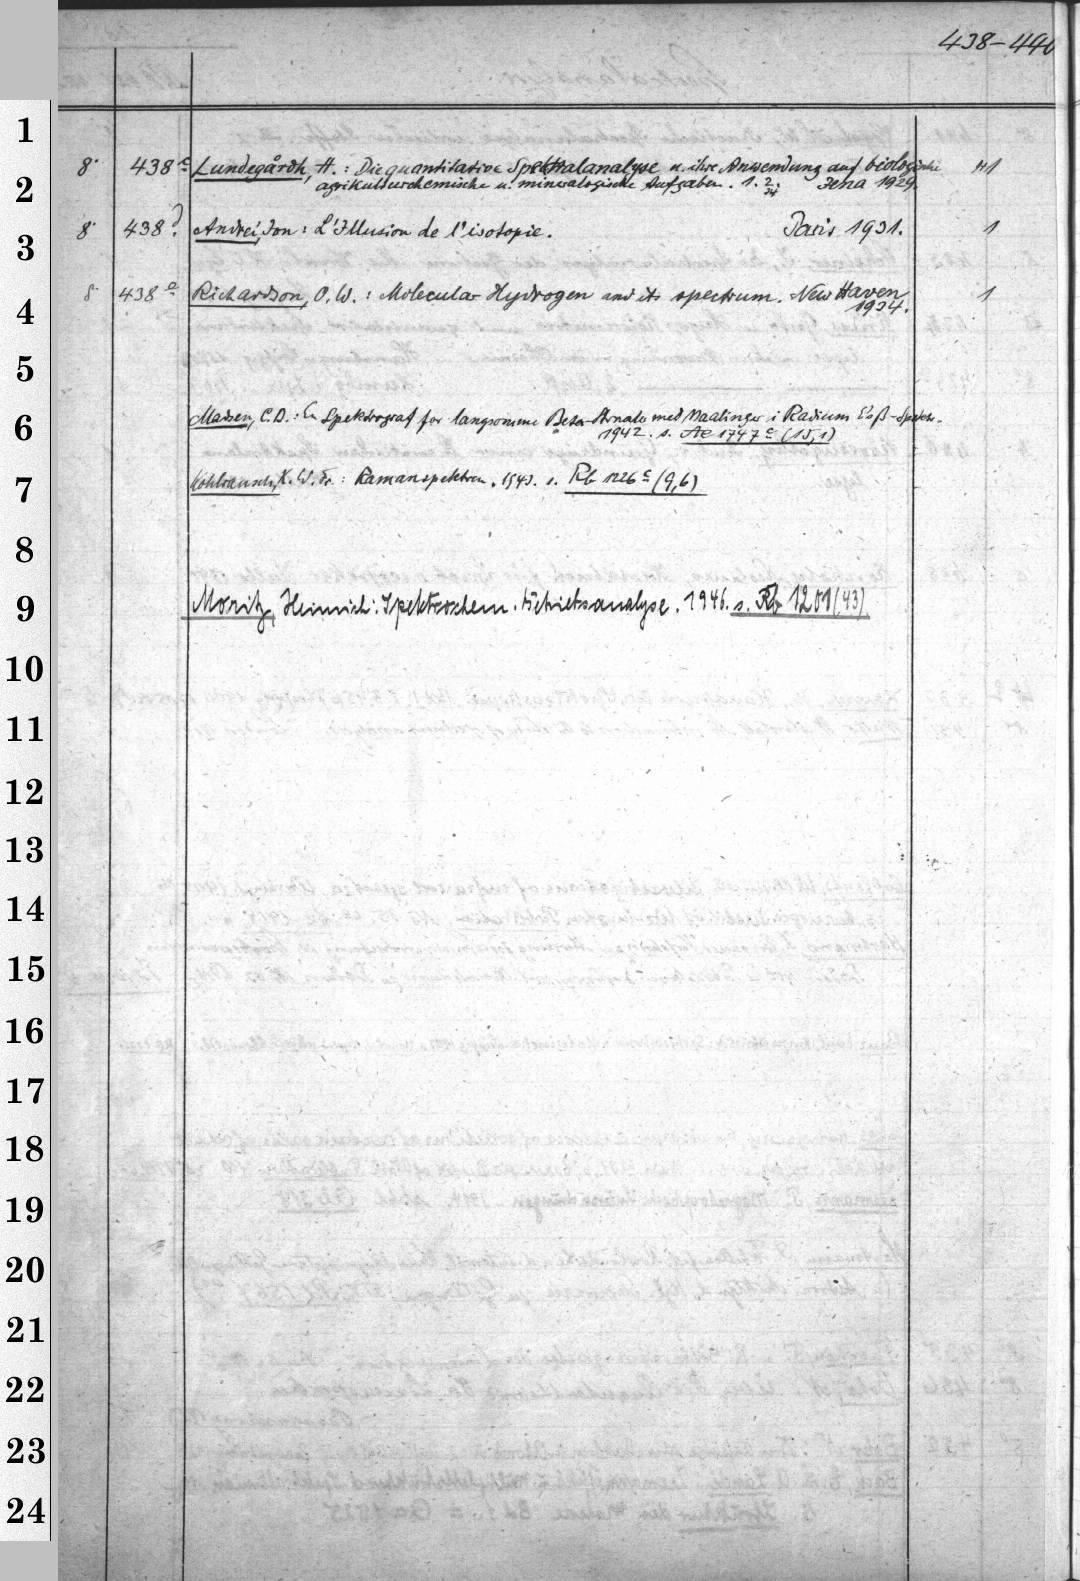 438-440
8° 438 c Lundegårdh, H.: Die quantitative Spektralanalyse u. ihre Anwendung auf biologische
agrikulturchemische u. mineralogische Aufgaben. 1. 2. Jena 1929.
8° 438 Andrei, Ion: L'Illusion de l'isotopie. Paris 1931. 1
8° 438 e Richardson, O. W.: Molecular Hydrogen and its spectrum. New Haven 1
1934.
Madsen, C. D.: En Spektrograf for langsomme Beta- med Maalinger i Radium
1942. s. Ac 1747 c (15,1)
Kohlrausch, K. W. Fr.: Ramanspektren. 1943. s. Rb 1226 c (9,6)
Moritz, Heinrich: Spektrochem. Betriebsanalyse. 1946. s. Rb 1201 (43)
1
2
3
4
5
6
7
8
9
10
11
12
13
14
15
16
17
18
19
20
21
22
23
24